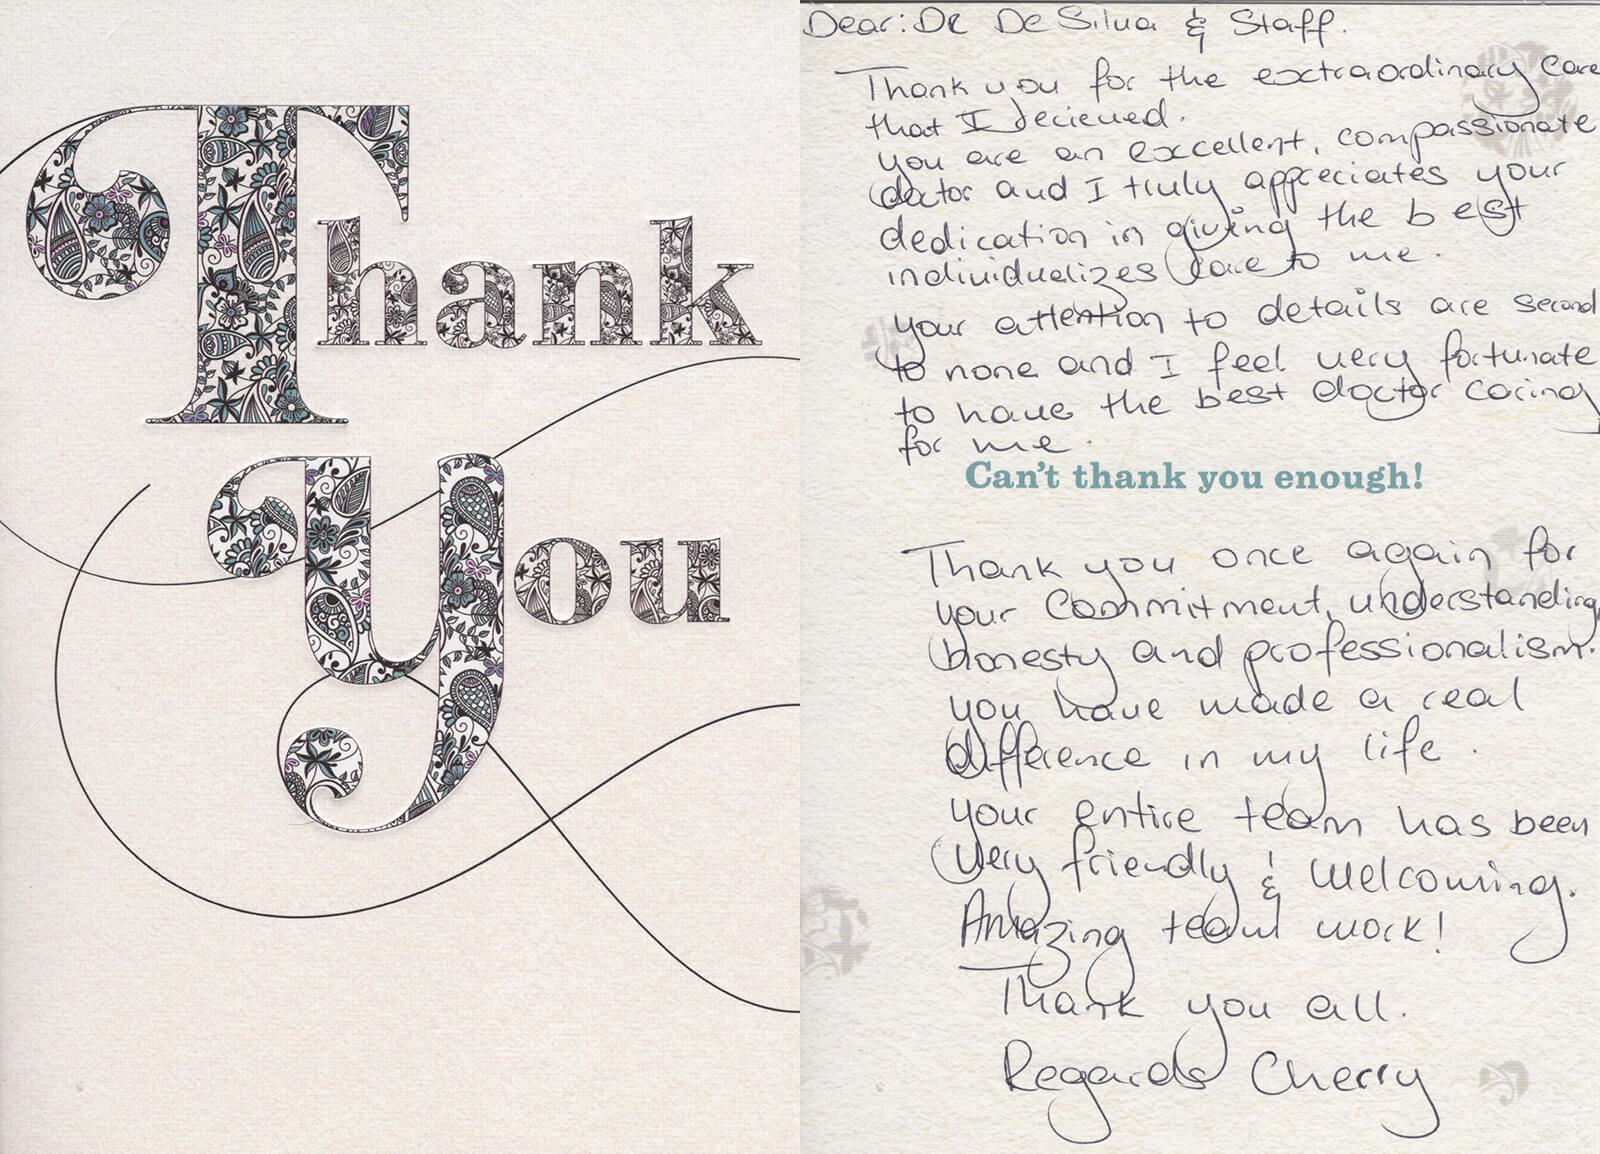 Thank
You
Dear: Dr De Silva & Staff.
Thank you for the extraordinary care
that I recieved.
you are an excellent, compassionate
doctor and I truly appreciates your
dedication in giving the best
individualizes care to me.
your attention to details are second
to none and I feel very fortunate
to have the best doctor caring
for me.
Can't thank you enough!
Thank you once again for
your commitment, understanding,
honesty and professionalism.
you have made a real
difference in my life.
your entire team has been
very friendly & welcoming.
Amazing team work!
Thank you all.
Regards Cherry